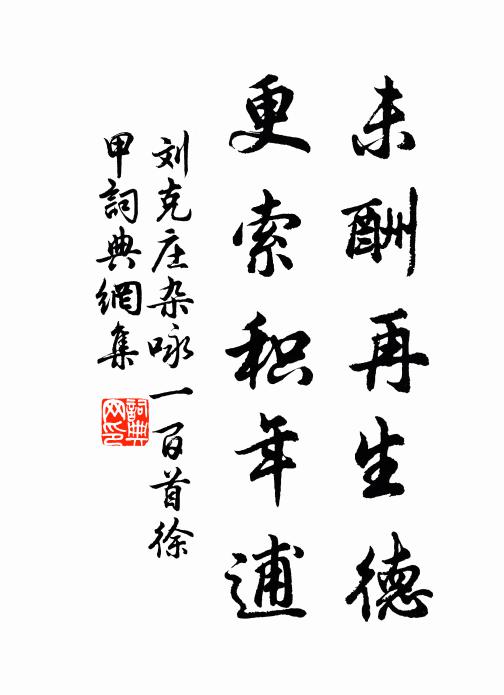 未酬再生德
更索积年逋
刘克庄杂咏一百首徐
甲詞典網集
詞典
网印